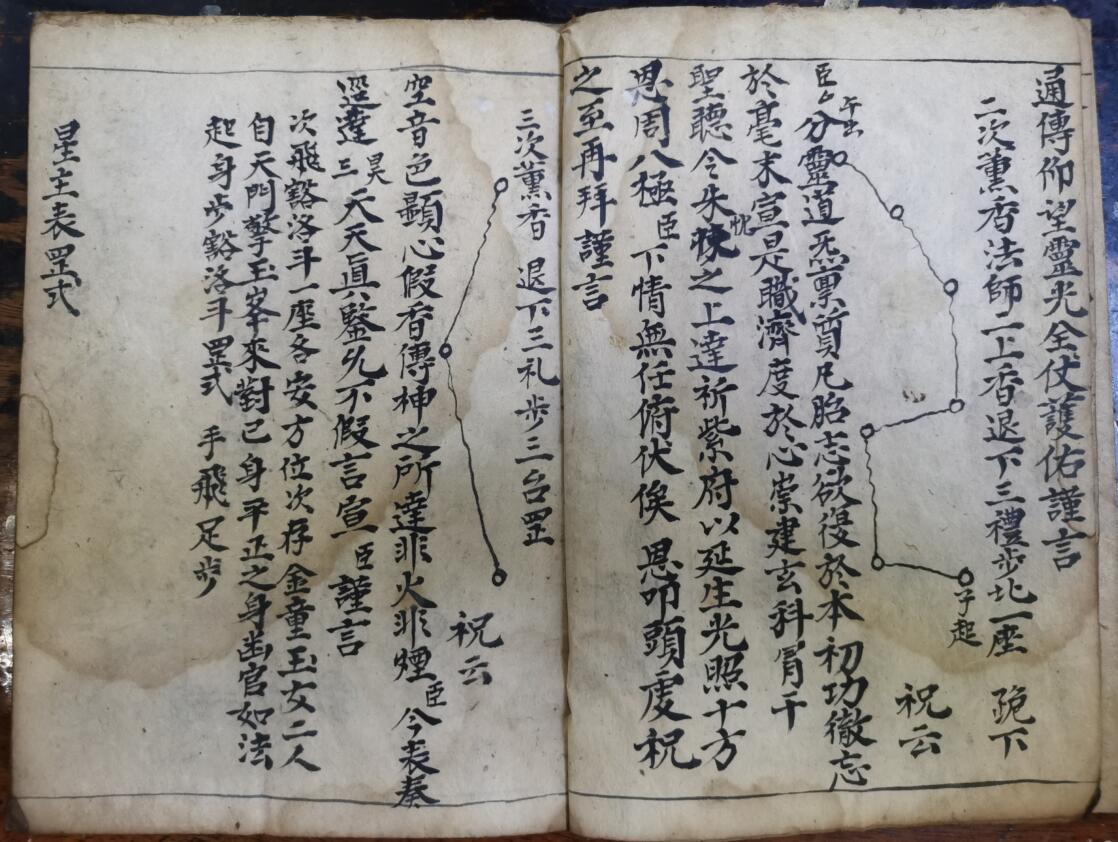 通傳仰望靈光全仗護佑謹言
二次薰香法師二上香退下三禮步北一座 跪下
祝云
子起
午出
臣厶分靈道炁禀質凡胎志欲復於本初功徹忘
於毫末宣是職濟度於心崇建玄科冐干
聖聽今朱之上達祈紫府以延生光照十方
恩周八極臣下情無任俯伏俟 恩叩頭虔祝
之至再拜謹言
三次薰香 退下三礼步三台罡
祝云
空音色顯心假香傳神之所達非火非煙臣今表奏
逕達三昊天天真鑒允不假言宣臣謹言
次飛豁洛斗一座各安方位次存金童玉女二人
自天門擎玉峯來對已身平正之身出官如法
起身步豁洛斗罡式 手飛足步
星主表罡式